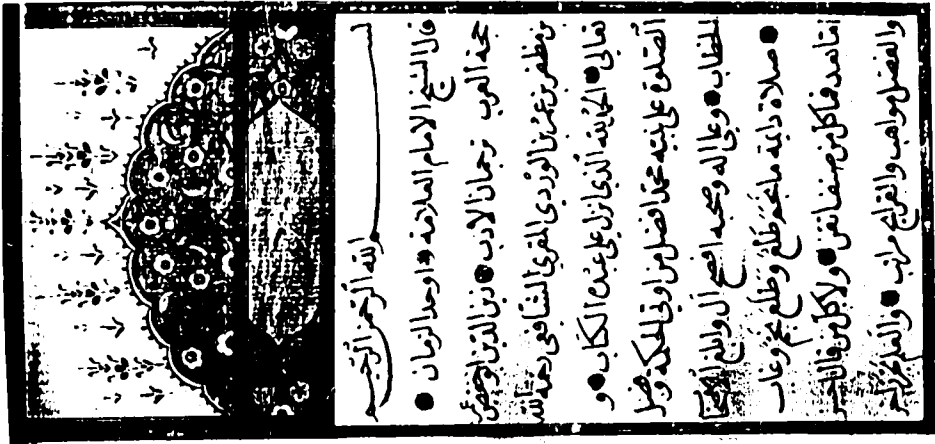 بسم الله الرحمن الرحيم
قال الشيخ الامام العلامة واوحد الزمان
حجة العرب ترجمان الادب زين الدين ابو حفص عمر
بن مظفر بن عمر بن الوردي المقري الشافعي رحمه الله
تعالى الحمد لله الذي نزل على عبده الكتاب و
الصلوة على نبيه محمد افضل من اوتي الحكمة وفصل
الخطاب وعلى اله وصحبه افصح آل وابلغ اصحاب
صلاة دايمة ما نجم طلع وطلع نجم وغاب
اما بعد فما كل من صنف اتقن ولا كل من قال احسن
والفضل مواهب والقرايح مراتب والعلم